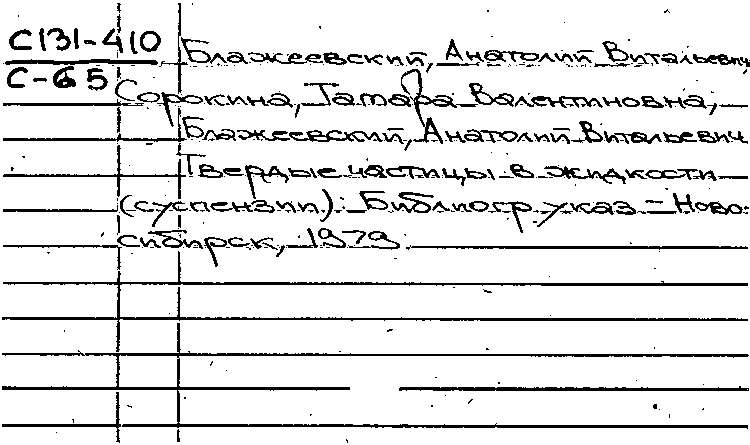 С131-410
С-65
Блажеевский, Анатолий Витальевич,
Сорокина, Тамара Валентиновна,
Блажеевский, Анатолий Витальевич
Твердые частицы в жидкости
(суспензии): Библиогр. указ. – Ново-
сибирск, 1979.